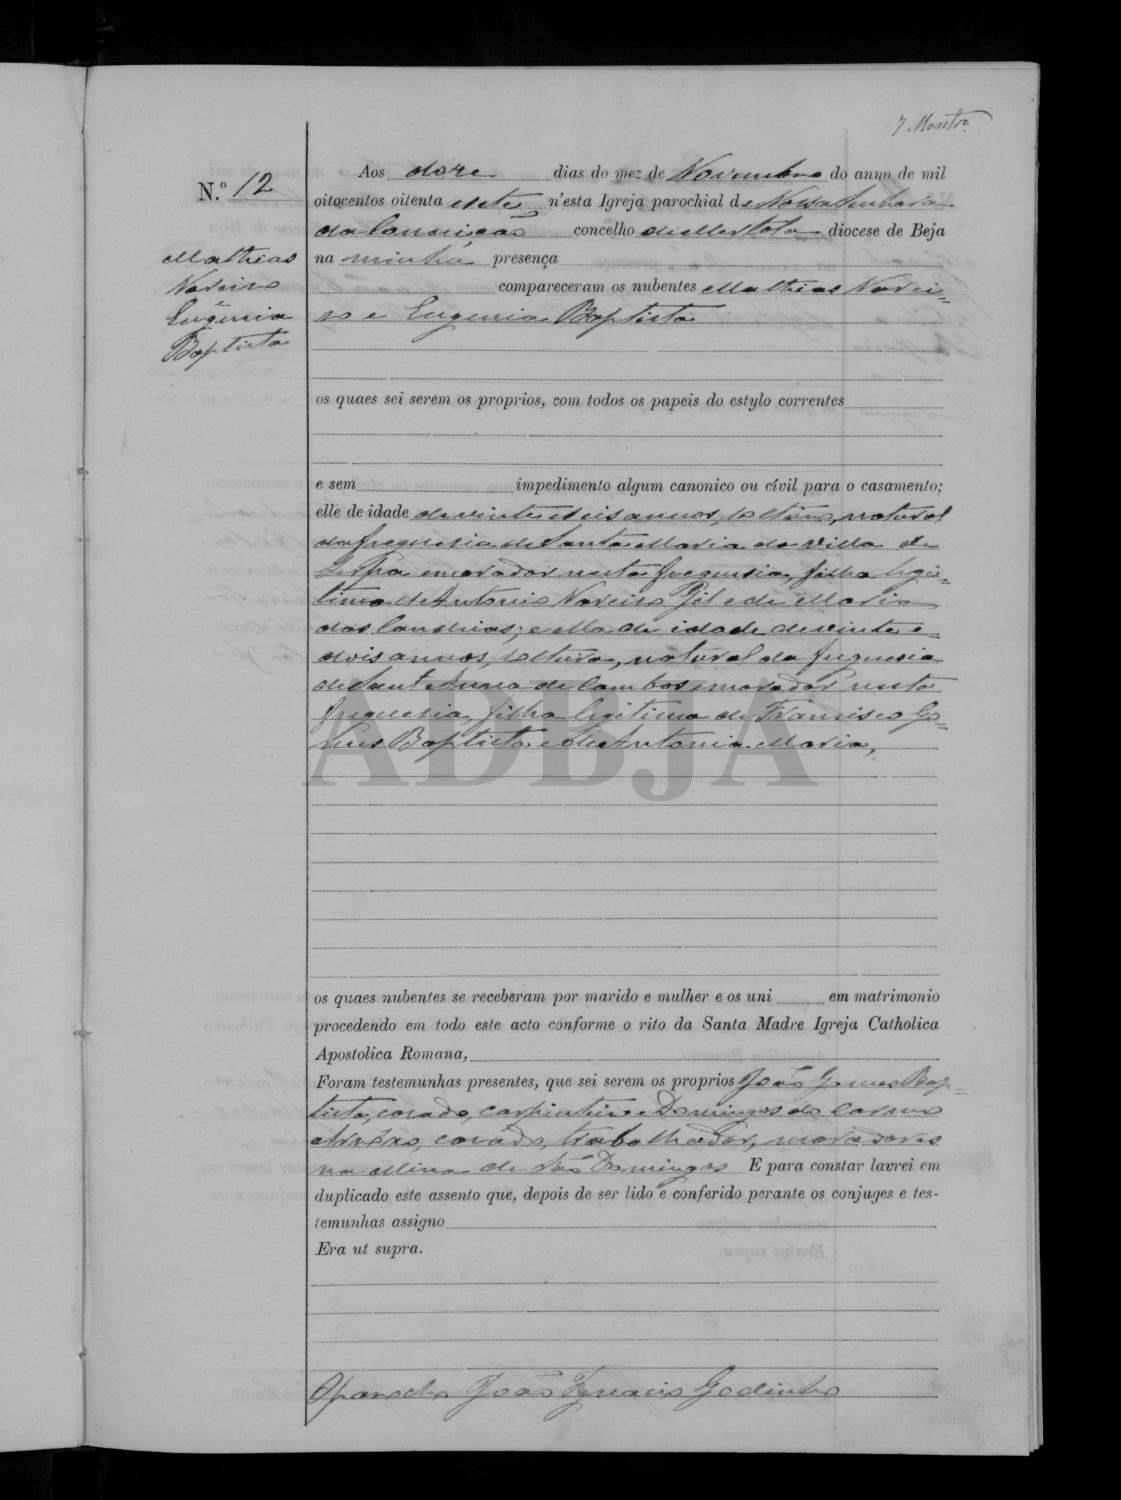 7 Montro.
N.º 12
Mathias
Nareiso
e
Eugenia
Baptista
Aos doze dias do mez de Novembro do anno de mil
oitocentos oitenta e sete n'esta Igreja parochial de Nossa Senhora
da Conceição concelho de Mertola diocese de Beja
na minha presença
compareceram os nubentes Mathias Narei-
so e Eugenia Baptista
os quaes sei serem os proprios, com todos os papeis do estylo correntes
e sem impedimento algum canonico ou cívil para o casamento;
elle de idade de vinte e seis annos, solteiro, natural
da freguesia de Santa Maria da villa de
Serpa e morador nesta freguesia, filho legi-
timo de Antonio Nareiso Gil e de Maria
das Candeias; e ella de idade de vinte e
dois annos, solteira, natural da freguesia
de Sant'Anna de Cambas e morador nesta
freguesia, filha legitima de Francisco Go-
Baptista e de Antonia Maria,
ADBJA
os quaes nubentes se receberam por marido e mulher e os uni em matrimonio
procedendo em todo este acto conforme o rito da Santa Madre Igreja Catholica
Apostolica Romana,
Foram testemunhas presentes, que sei serem os proprios João Gomes Bap-
tista, casado, carpinteiro e Domingos do Carmo
casado, trabalhador, moradores
na Mina de São Domingos E para constar lavrei em
duplicado este assento que, depois de ser lido e conferido perante os conjuges e tes-
temunhas assigno
Era ut supra.
O parocho João Ignacio Godinho